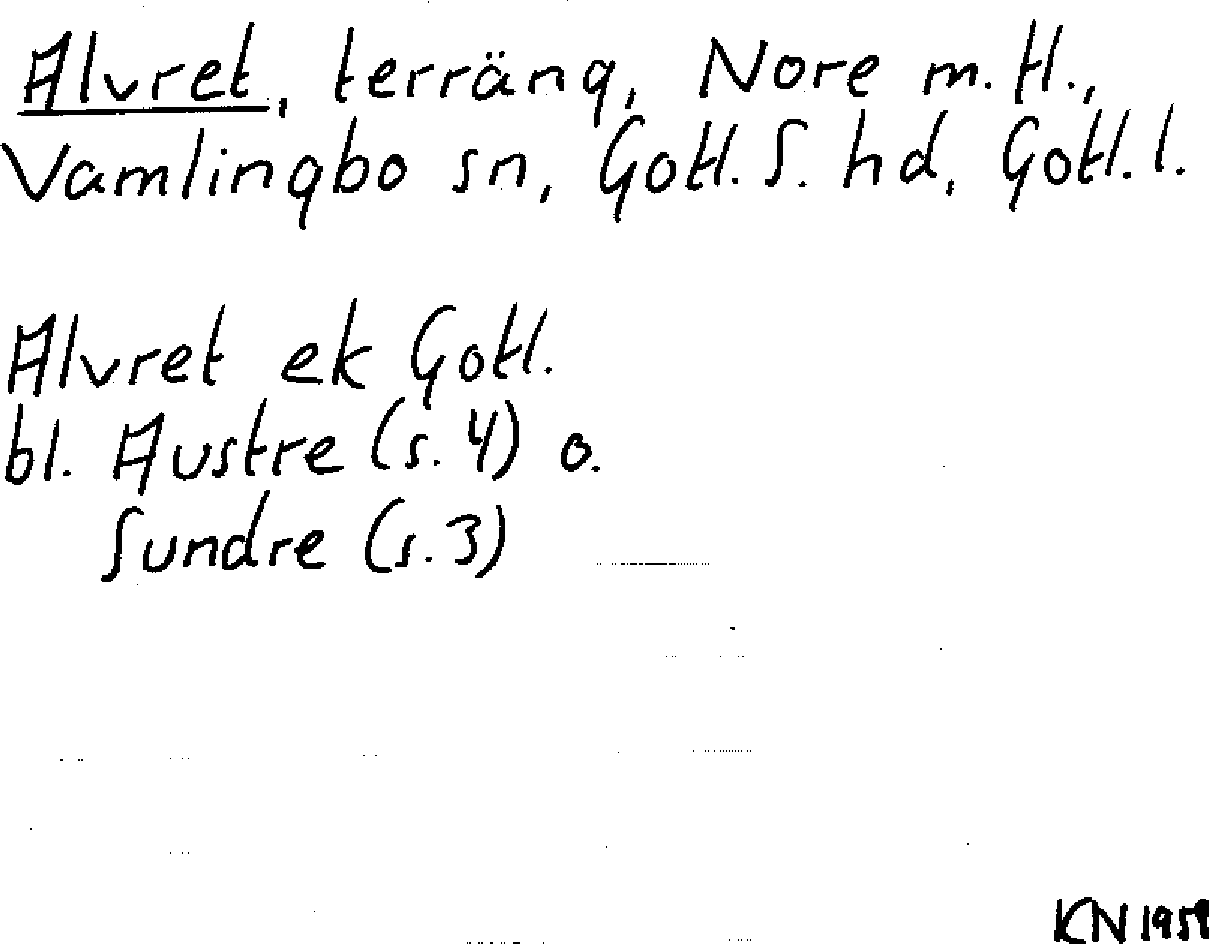 Alvret, terräng, Nore m.fl.,
Vamlingbo sn, Gotl. S. hd, Gotl. l.
Alvret ek Gotl.
bl. Austre (s. 4) o.
Sundre (s. 3)
KN 1959